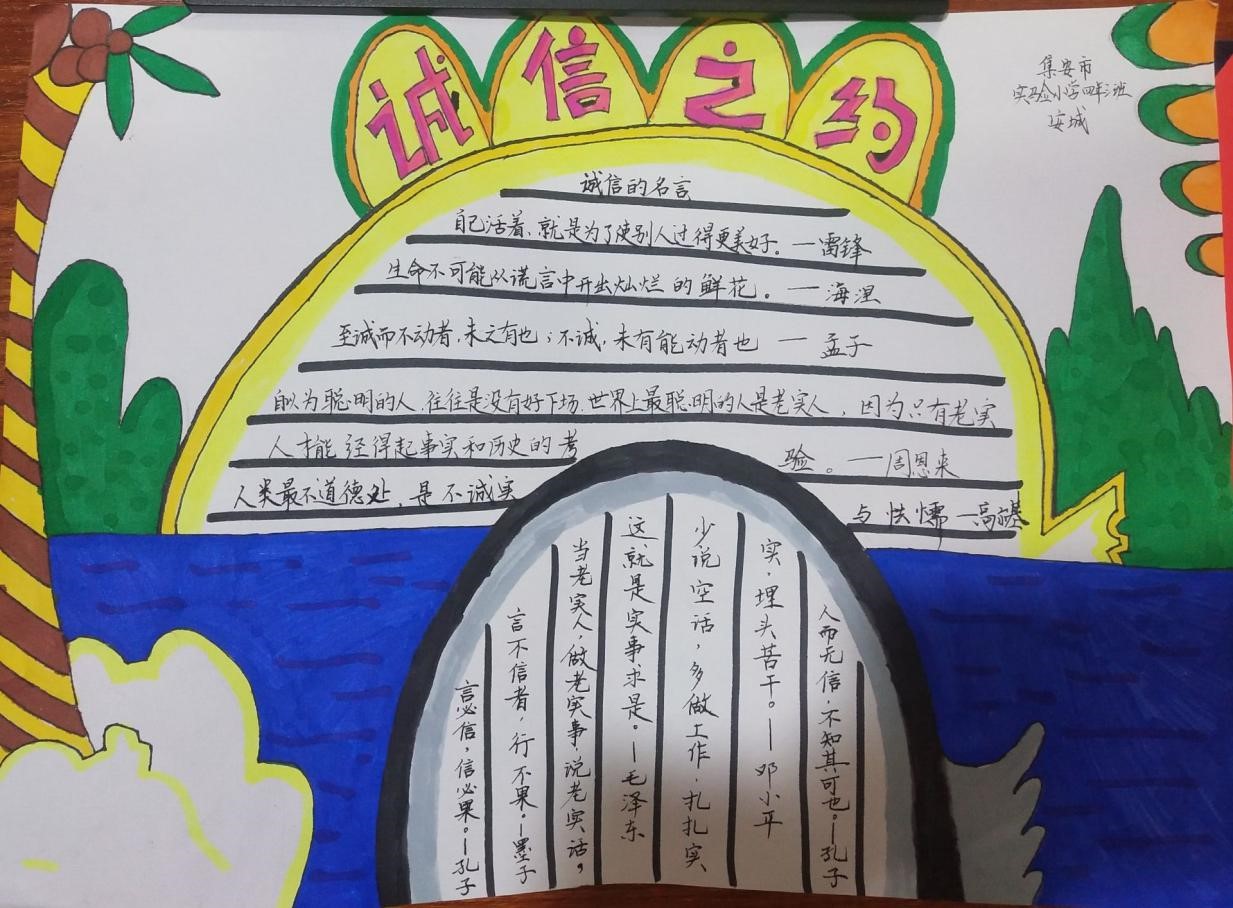 诚信之约
集安市
实验小学四年三班
诚信的名言
自己活着、就是为了使别人过得更美好。—雷锋
生命不可能从谎言中开出灿烂的鲜花。—海涅
至诚而不动者,未之有也;不诚,未有能动者也 — 孟子
自以为聪明的人,往往是没有好下场.世界上最聪明的人是老实人,因为只有老实
人才能经得起事实和历史的考验。—周恩来
人类最不道德处,是不诚实与怯懦—高尔基
言必信,信必果。—孔子
言不信者,行不果。—墨子
当老实人,做老实事,说老实话,
这就是实事求是。—毛泽东
少说空话,多做工作,扎扎实
实,埋头苦干。—邓小平
人而无信,不知其可也。—孔子